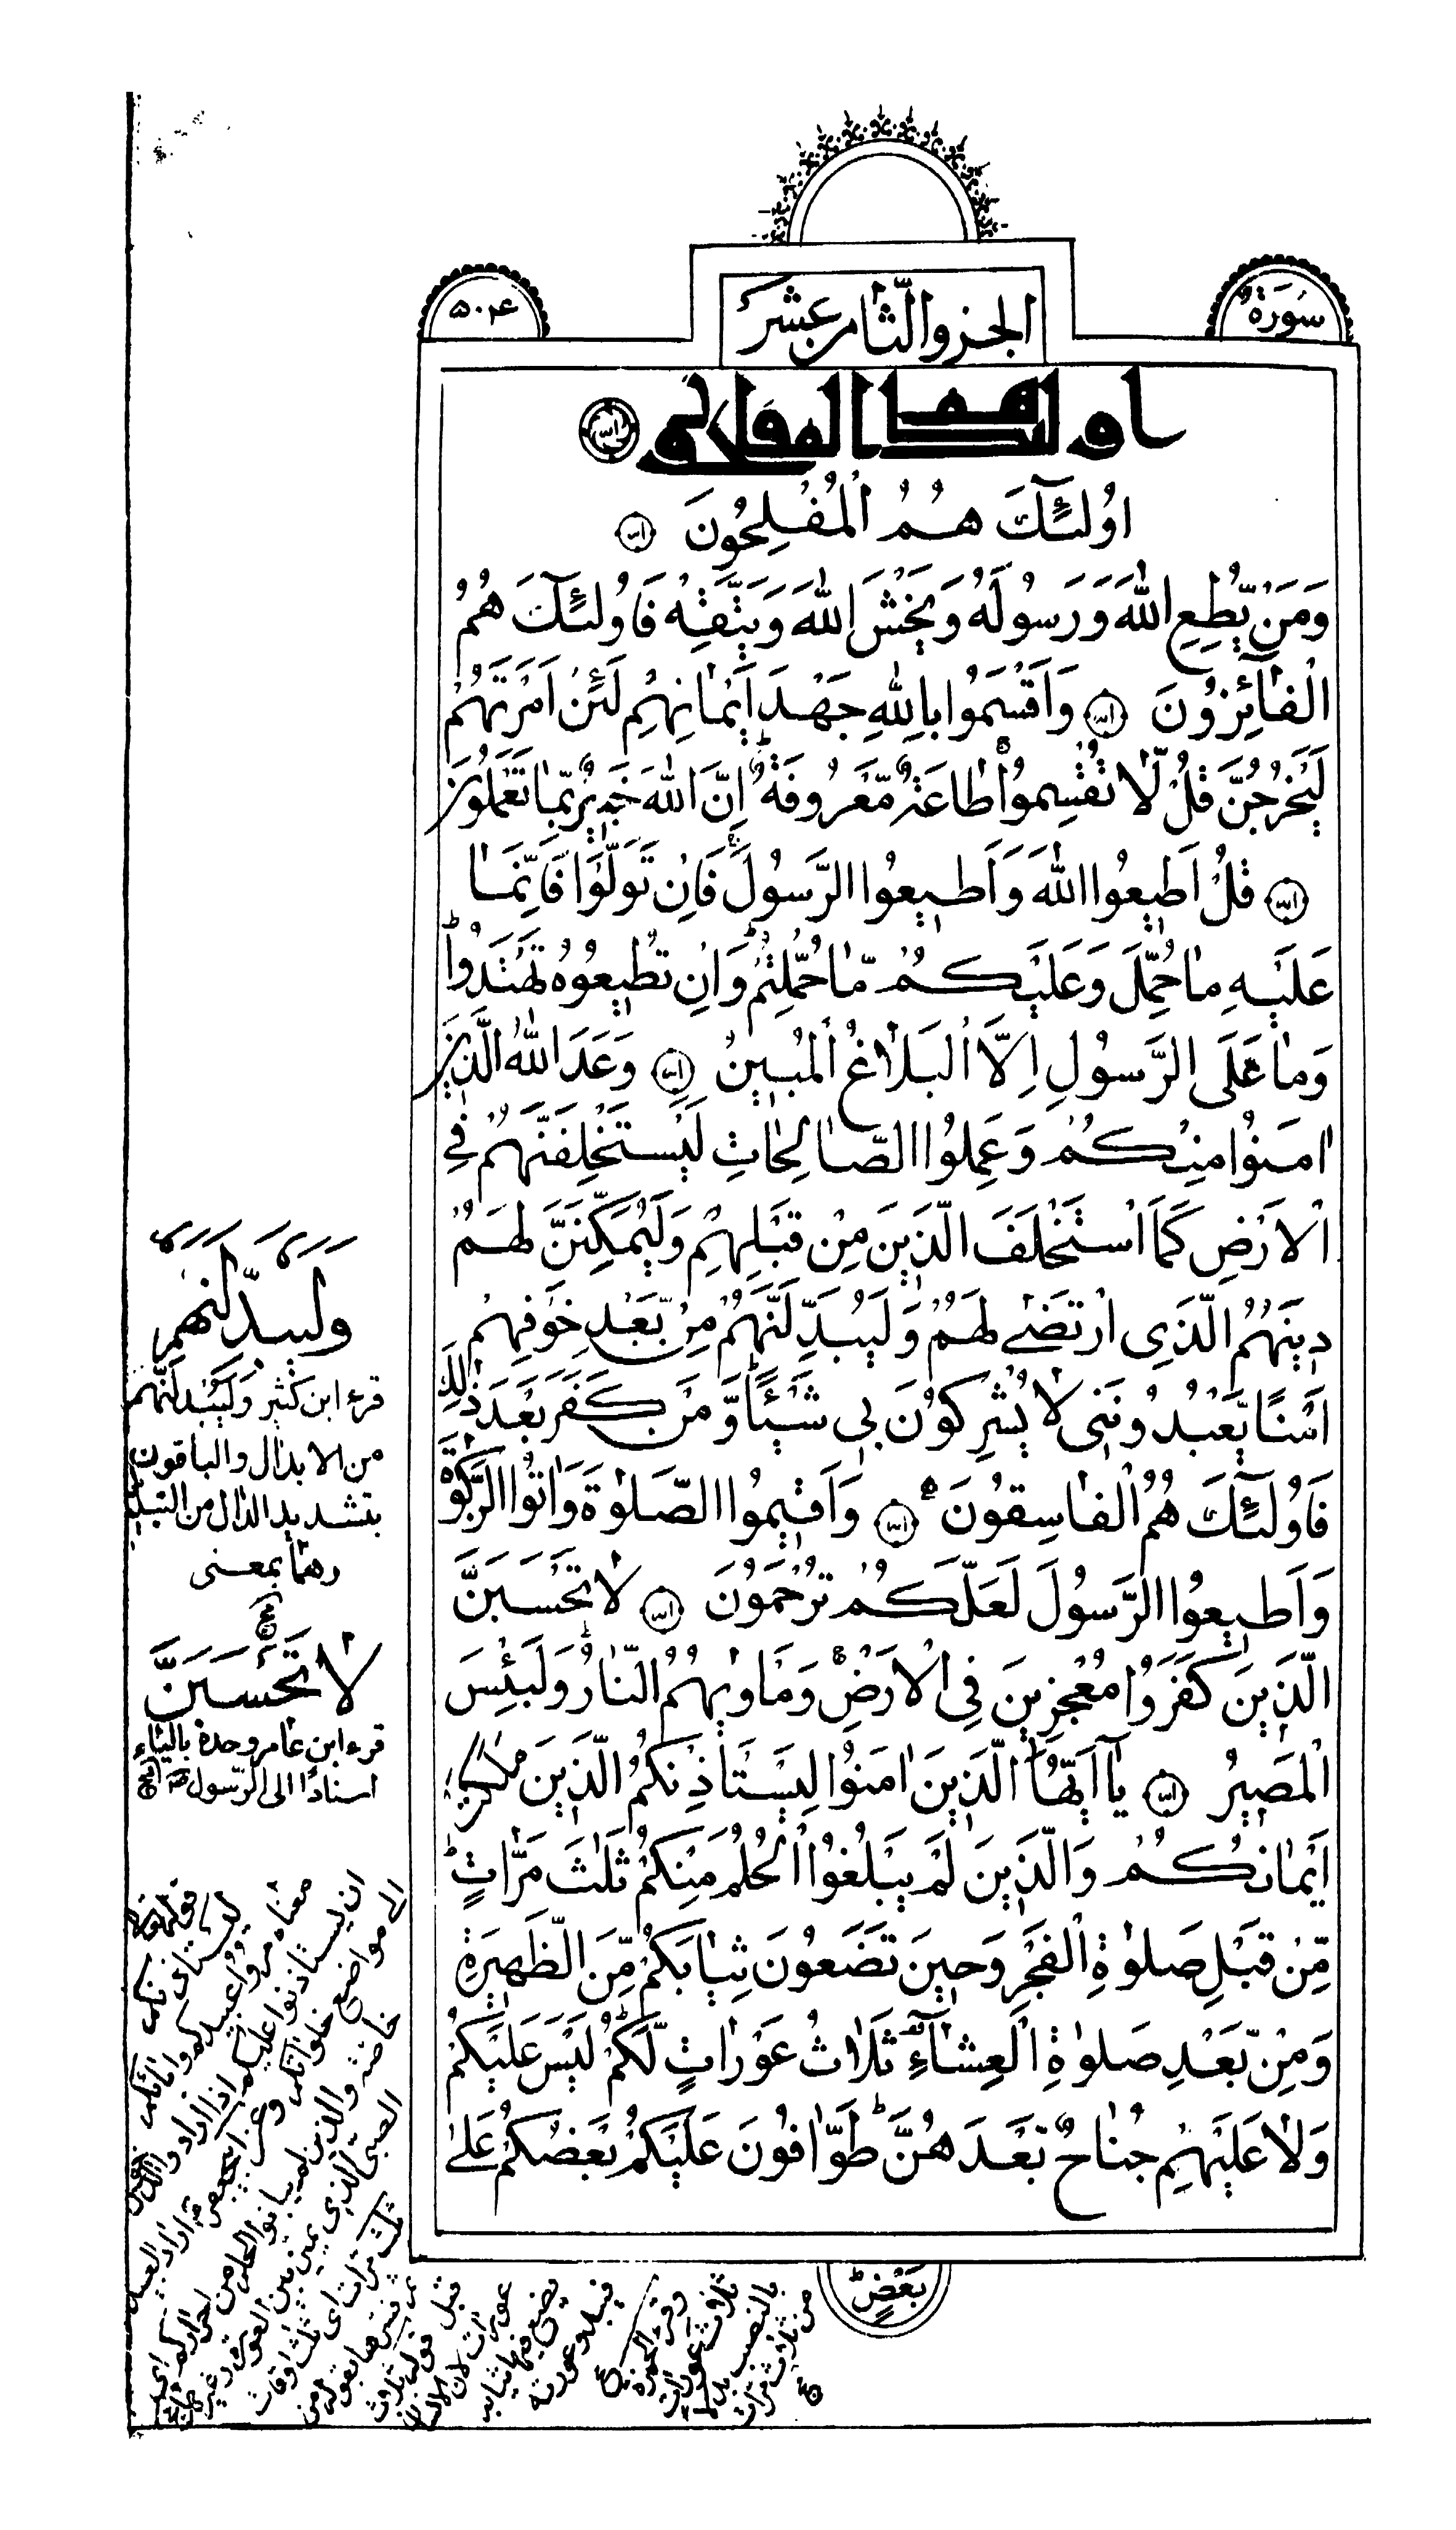 سُورَةٌ
الجزو الثّامن عشر
۵۰۴
اولئك هم المفلحون
اُولٰئِكَ هُمُ الْمُفْلِحُونَ
وَمَنْ يُطِعِ اللّٰهَ وَرَسُولَهُ وَيَخْشَ اللّٰهَ وَيَتَّقْهِ فَاُولٰئِكَ هُمُ
الْفٰائِزُونَ وَاَقْسَمُوا بِاللّٰهِ جَهْدَ اَيْمٰانِهِمْ لَئِنْ اَمَرْتَهُمْ
لَيَخْرُجُنَّ قُلْ لٰا تُقْسِمُوا طٰاعَةٌ مَعْرُوفَةٌ اِنَّ اللّٰهَ خَبِيرٌ بِمٰا تَعْمَلُونَ
قُلْ اَطِيعُوا اللّٰهَ وَاَطِيعُوا الرَّسُولَ فَاِنْ تَوَلَّوْا فَاِنَّمٰا
عَلَيْهِ مٰا حُمِّلَ وَعَلَيْكُمْ مٰا حُمِّلْتُمْ وَاِنْ تُطِيعُوهُ تَهْتَدُوا
وَمٰا عَلَى الرَّسُولِ اِلَّا الْبَلٰاغُ الْمُبِينُ وَعَدَ اللّٰهُ الَّذِينَ
اٰمَنُوا مِنْكُمْ وَعَمِلُوا الصّٰالِحٰاتِ لَيَسْتَخْلِفَنَّهُمْ فِي
الْاَرْضِ كَمَا اسْتَخْلَفَ الَّذِينَ مِنْ قَبْلِهِمْ وَلَيُمَكِّنَنَّ لَهُمْ
دِينَهُمُ الَّذِي ارْتَضٰى لَهُمْ وَلَيُبَدِّلَنَّهُمْ مِنْ بَعْدِ خَوْفِهِمْ
اَمْنًا يَعْبُدُونَنِي لٰا يُشْرِكُونَ بِي شَيْئًا وَمَنْ كَفَرَ بَعْدَ ذٰلِكَ
فَاُولٰئِكَ هُمُ الْفٰاسِقُونَ وَاَقِيمُوا الصَّلٰوةَ وَاٰتُوا الزَّكٰوةَ
وَاَطِيعُوا الرَّسُولَ لَعَلَّكُمْ تُرْحَمُونَ لٰا تَحْسَبَنَّ
الَّذِينَ كَفَرُوا مُعْجِزِينَ فِي الْاَرْضِ وَمَأْوٰيهُمُ النّٰارُ وَلَبِئْسَ
الْمَصِيرُ يٰا اَيُّهَا الَّذِينَ اٰمَنُوا لِيَسْتَأْذِنْكُمُ الَّذِينَ مَلَكَتْ
اَيْمٰانُكُمْ وَالَّذِينَ لَمْ يَبْلُغُوا الْحُلُمَ مِنْكُمْ ثَلٰثَ مَرّٰاتٍ
مِنْ قَبْلِ صَلٰوةِ الْفَجْرِ وَحِينَ تَضَعُونَ ثِيٰابَكُمْ مِنَ الظَّهِيرَةِ
وَمِنْ بَعْدِ صَلٰوةِ الْعِشٰاءِ ثَلٰاثُ عَوْرٰاتٍ لَكُمْ لَيْسَ عَلَيْكُمْ
وَلٰا عَلَيْهِمْ جُنٰاحٌ بَعْدَهُنَّ طَوّٰافُونَ عَلَيْكُمْ بَعْضُكُمْ عَلٰى
بَعْضٍ
وَلَيُبَدِّلَنَّهُمْ
قرء ابن كثير وَلَيُبْدِلَنَّهُمْ
من الابدال والباقون
بتشديد الدال من التبديل
وهما بمعنى
لٰا تَحْسَبَنَّ
قرء ابن عامر وحمزة بالياء
اسنادًا الى الرّسول